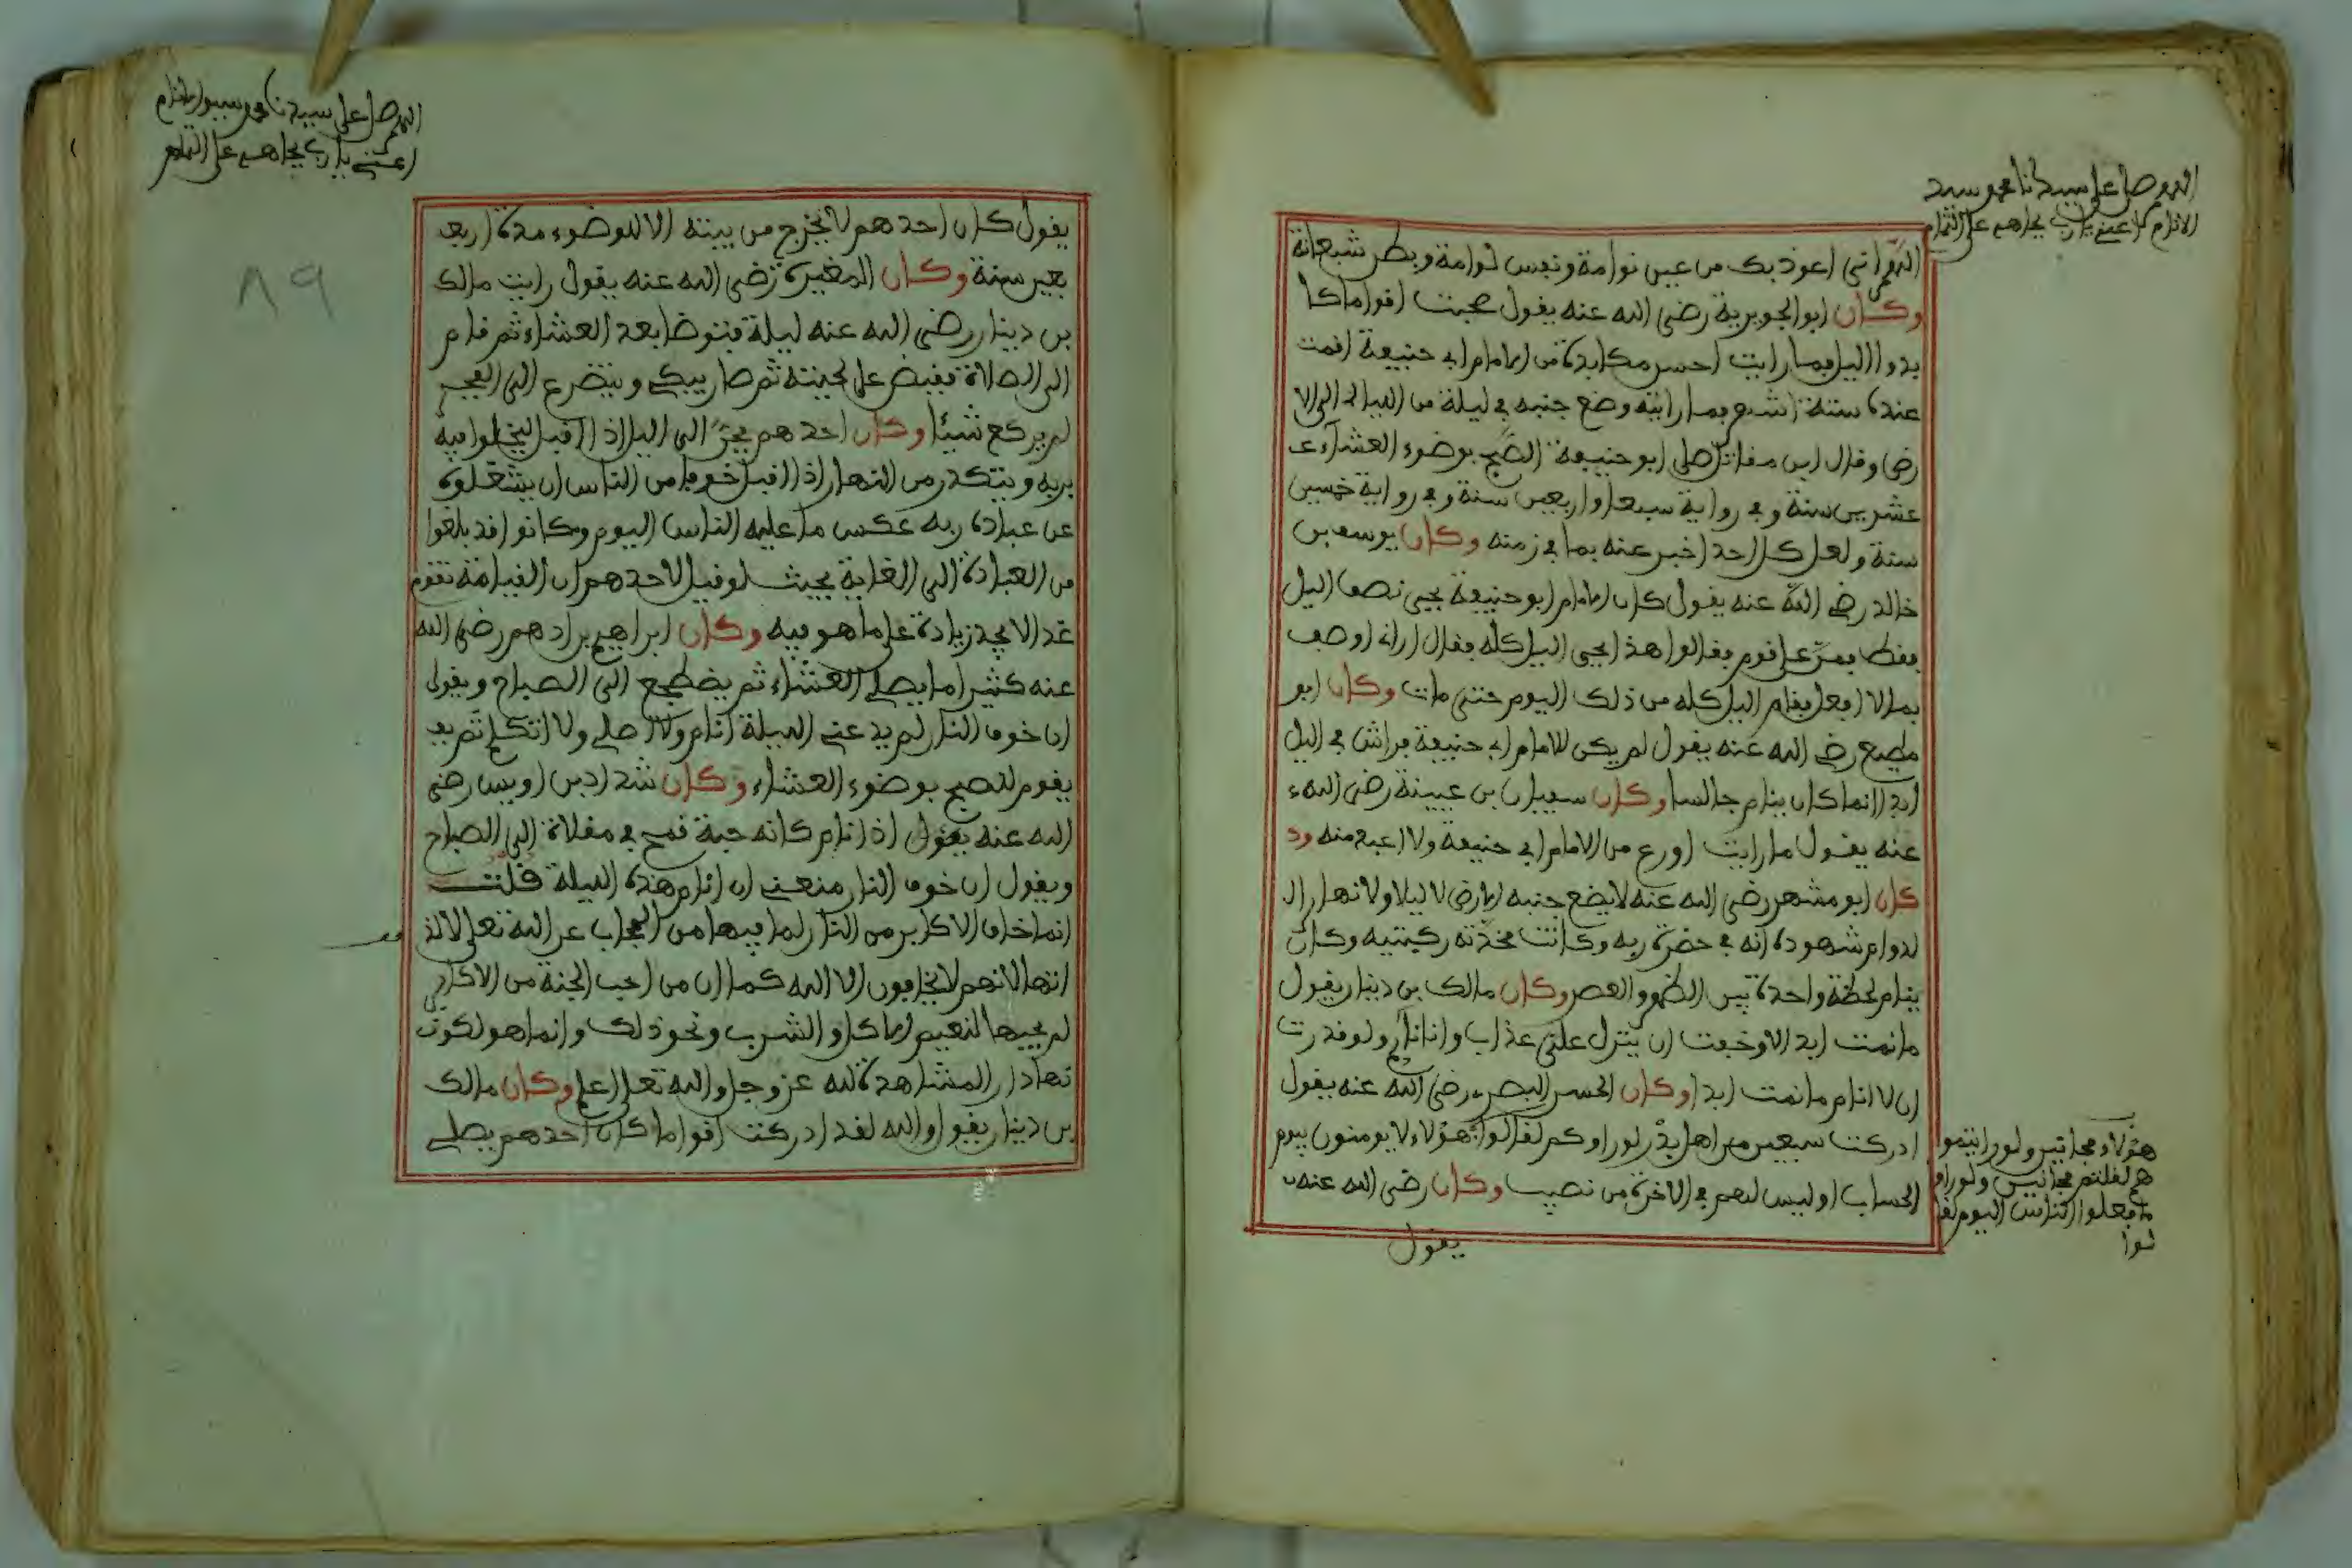 اللهم صل على سيدنا محمد سيد
الانام اعني يارب بجاهه على التمام
اللهم اني اعوذ بك من عين نوامة ونفس لوامة وبطن شبعانة
وكان ابو الجويرية رضي الله عنه يقول صحبت اقواما كا
بدوا الليل فما رايت احسن مكابدة من الامام ابي حنيفة اقمت
عنده ستة اشهر فما رايته وضع جنبه في ليلة من الليالي الى الا
رض وقال ابن مقاتل صلى ابو حنيفة الصبح بوضوء العشاء عـ
عشرين سنة وفي رواية سبعا واربعين سنة وفي رواية خمسين
سنة ولعل كل احد اخبر عنه بما في زمنه وكان يوسف بن
خالد رضي الله عنه يقول كان الامام ابو حنيفة يحيى نصف الليل
فقط فمر على قوم فقالوا هذا يحيى الليل كله فقال اراني اوصف
بما لا افعل فقام الليل كله من ذلك اليوم حتى مات وكان ابو
مطيع رضي الله عنه يقول لم يكن للامام ابي حنيفة فراش في الليل
ابدا انما كان ينام جالسا وكان سفيان بن عيينة رضي الله ء
عنه يقول ما رايت اورع من الامام ابي حنيفة ولا اعبد منه ود
كان ابو مشهر رضي الله عنه لا يضع جنبه الارض لا ليلا ولا نهارا لـ
لدوام شهوده انه في حضرة ربه وكانت مخدته ركبتيه وكان
ينام لحظة واحدة بين الظهر والعصر وكان مالك بن دينار يقول
ما نمت ابدا الا وخفت ان ينزل علي عذاب وانا نائم ولو قدرت
ان لا انام ما نمت ابدا وكان الحسن البصري رضي الله عنه يقول
ادركت سبعين من اهل بدر لو راوكم لقالوا هؤلاء لا يومنون بيوم
الحساب او ليس لهم في الاخرة من نصيب وكان رضي الله عنه
هؤلاء مجانين ولو رايتمو
هم لقلتم مجانين ولو راو
ما فعلوا الناس اليوم لقا
لوا
يقول
اللهم صل على سيدنا محمد سيد الانام
اعني يارب بجاهه على التمام
٨٩
يقول كان احدهم لا يخرج من بيته الا للوضوء مدة اربعـ
بعين سنة وكان المغيرة رضي الله عنه يقول رايت مالك
بن دينار رضي الله عنه ليلة فتوضا بعد العشاء ثم قام
الى الصلاة فقبض على لحيته ثم صار يبكي ويتضرع الى الفجر
لم يركع شيئا وكان احدهم يحن الى الليل اذا اقبل ليخلوا فيه
بربه ويتكدر من النهار اذا اقبل خوفا من الناس ان يشغلوه
عن عبادة ربه عكس ما عليه الناس اليوم وكانوا قد بلغوا
من العبادة الى الغاية بحيث لو قيل لاحدهم ان القيامة تقوم
غدا لا يجد زيادة على ما هو فيه وكان ابراهيم بن ادهم رضي الله
عنه كثيرا ما يصلي العشاء ثم يضطجع الى الصباح ويقول
ان خوف النار لم يدعني الليلة انام ولا اصلي ولا اتكلم ثم يقـ
يقوم للصبح بوضوء العشاء وكان شداد بن اويس رضي
الله عنه يقول اذا نام كانه حبة قمح في مقلاة الى الصباح
ويقول ان خوف النار منعني ان انام هذه الليلة قلت
انما خاف الاكابر من النار لما فيها من الحجاب عن الله تعلى لا لذ
اتها لانهم لا يخافون الا الله كما ان من احب الجنة من الاكابر
لم يحبها لنعيم الاكل والشرب ونحو ذلك وانما هو لكون
نهادار المشاهدة لله عز وجل والله تعلى اعلم وكان مالك
بن دينار يقول والله لقد ادركت اقواما كان احدهم يصلي